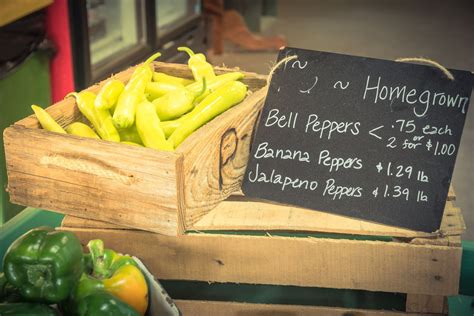 ~ ~ Homegrown
Bell Peppers < .75 each
2 for $1.00
Banana Peppers $1.29 lb
Jalapeno Peppers $1.39 lb